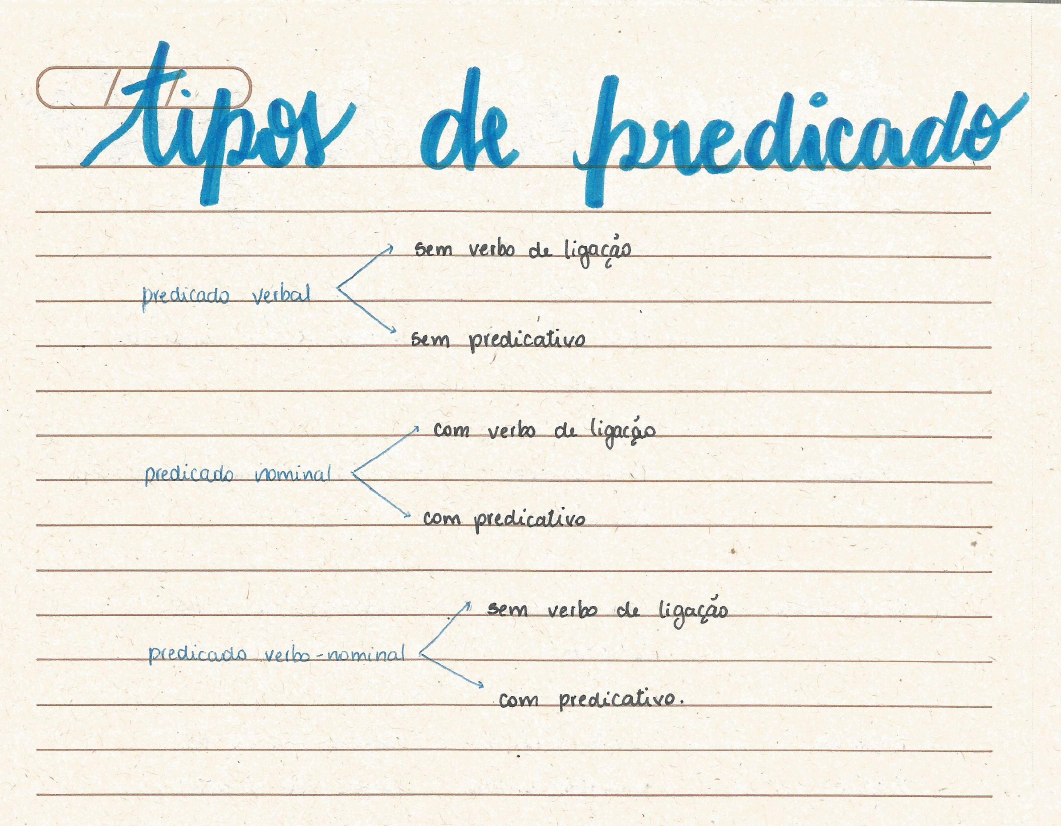 tipos de predicado
sem verbo de ligação
predicado verbal
sem predicativo
com verbo de ligação
predicado nominal
com predicativo
sem verbo de ligação
predicado verbo-nominal
com predicativo.